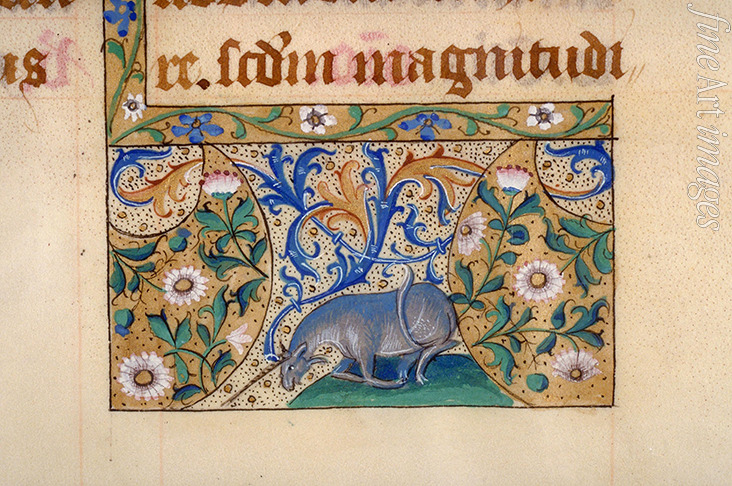 us rc. scd̄m magnitudi
fine Art images